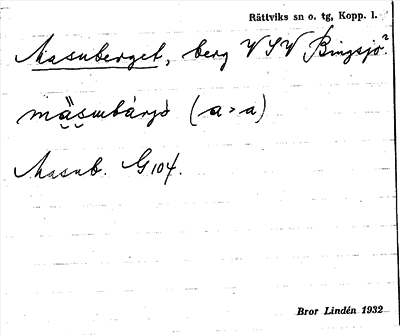 Rättviks sn o. tg, Kopp. l.
Masuberget, berg VSV Bingsjö?
mäsubárjò (a > a)
Masub. G 104.
Bror Lindén 1932